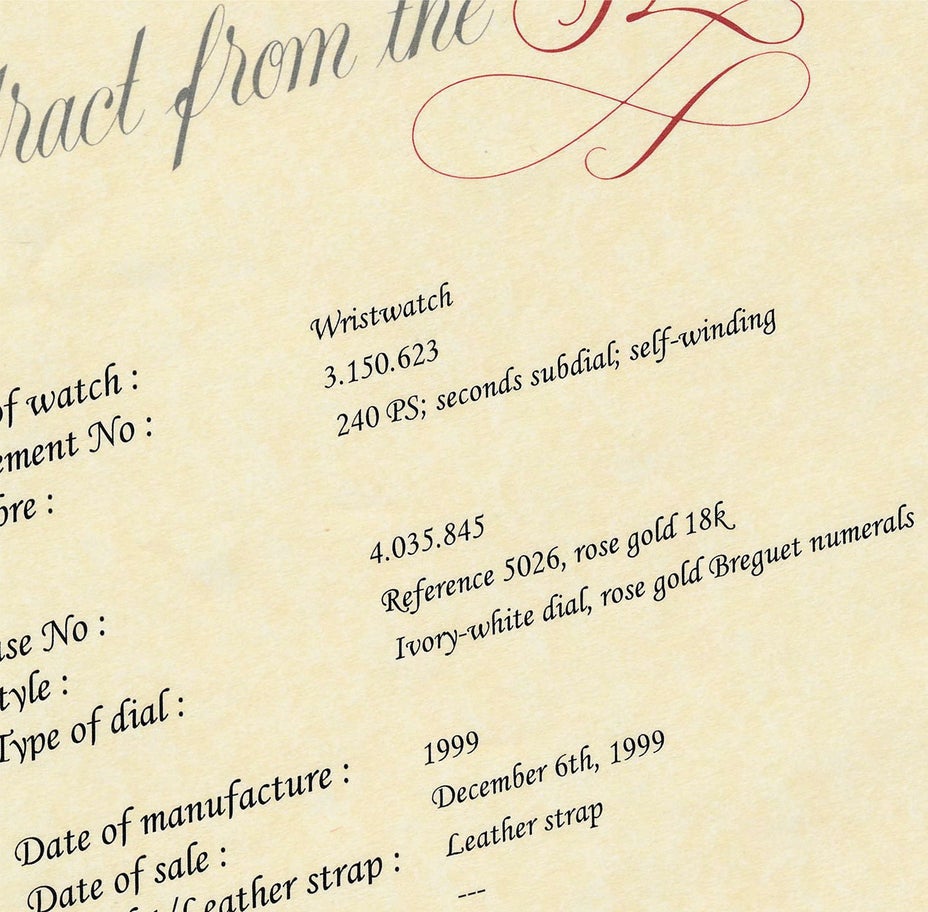 from the
of watch : Wristwatch
No : 3.150.623
240 PS; seconds subdial; self-winding
No : 4.035.845
Reference 5026, rose gold 18k
Type of dial : Ivory-white dial, rose gold Breguet numerals
Date of manufacture : 1999
Date of sale : December 6th, 1999
Leather strap : Leather strap
---